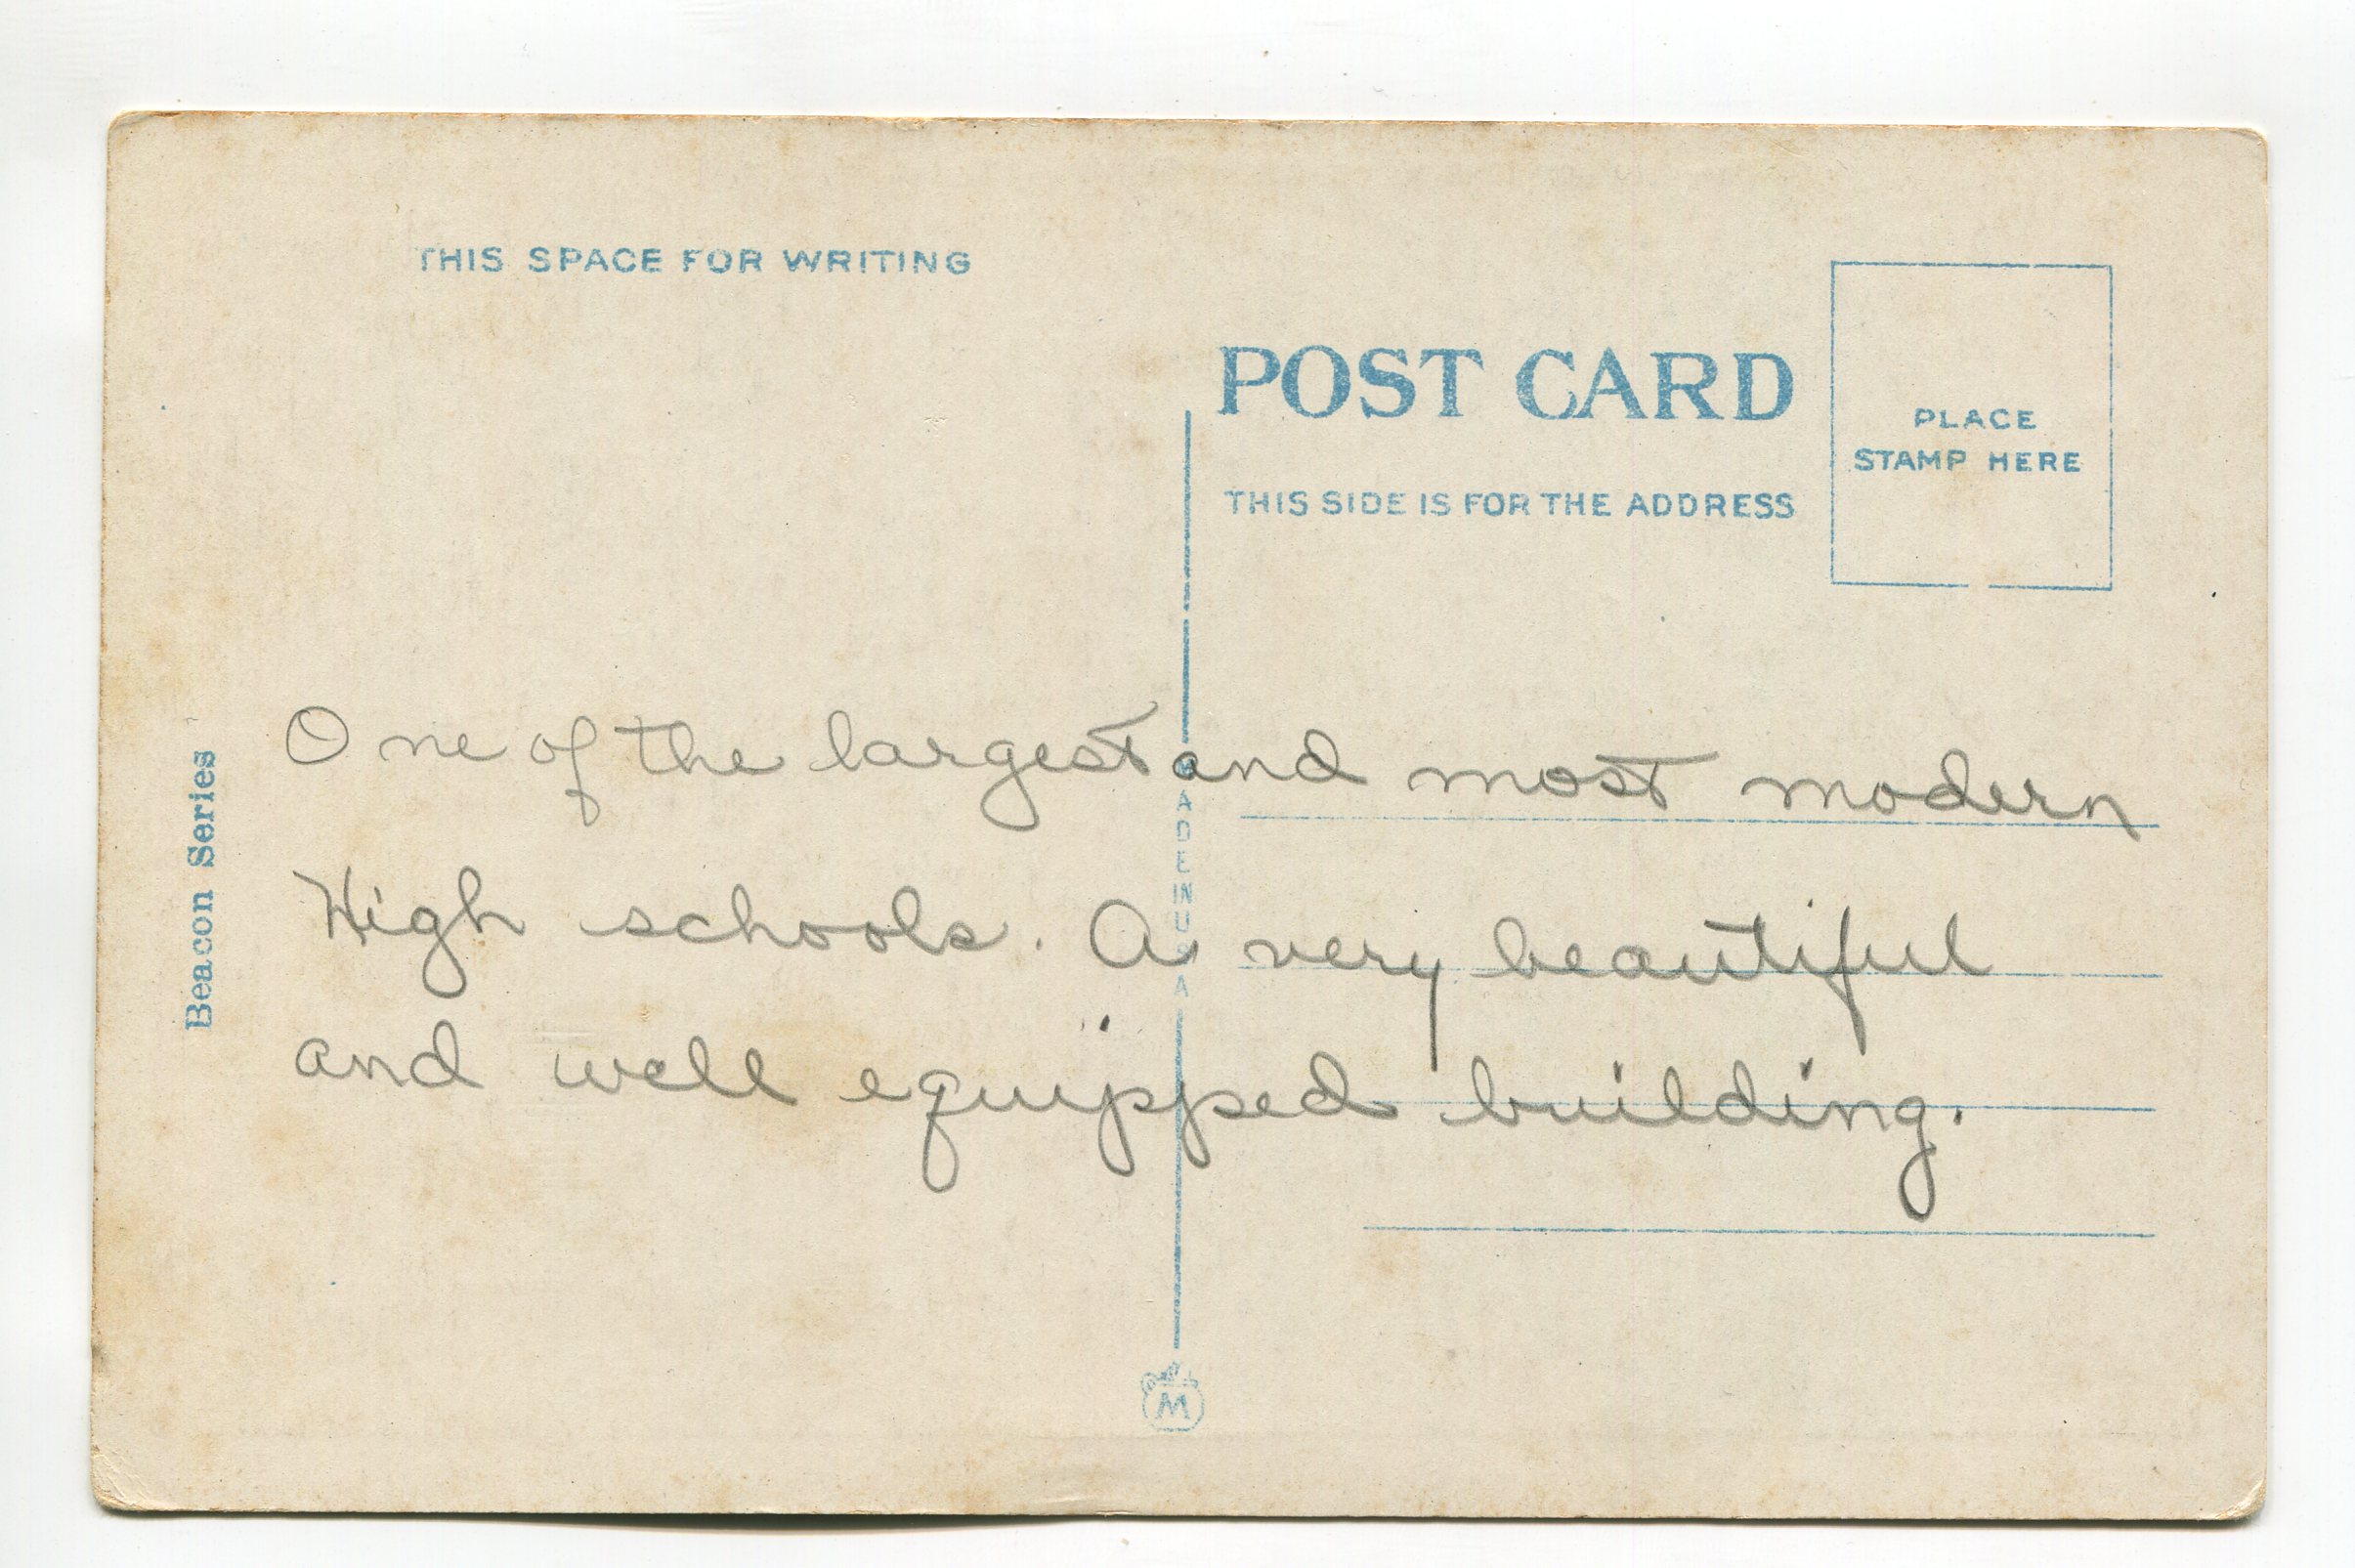 THIS SPACE FOR WRITING
POST CARD
PLACE
STAMP HERE
THIS SIDE IS FOR THE ADDRESS
One of the largest and most modern
High schools. A very beautiful
and well equipped building.
Beacon Series
MADE IN U.S.A
M